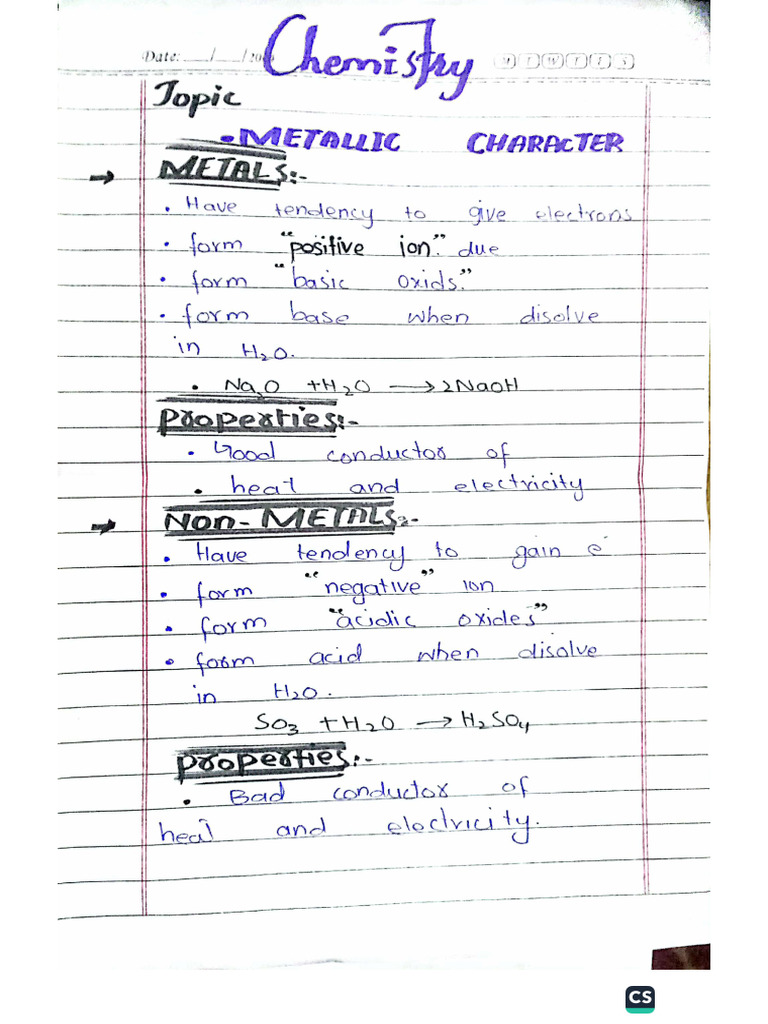 Chemistry
Date: __/__/20
M T W T F S
Topic
•METALLIC CHARACTER
→ METALS:-
• Have tendency to give electrons
• form "positive ion." due
• form "basic oxids."
• form base when disolve
in H₂O.
• Na₂O + H₂O → 2NaOH
Properties:-
• Good conductor of
• heat and electricity
→ Non-METALS:-
• Have tendency to gain e⁻
• form "negative" ion
• form "acidic oxides"
• form acid when disolve
in H₂O.
SO₃ + H₂O → H₂SO₄
Properties:-
• Bad conductor of
heat and eloctricity.
CS